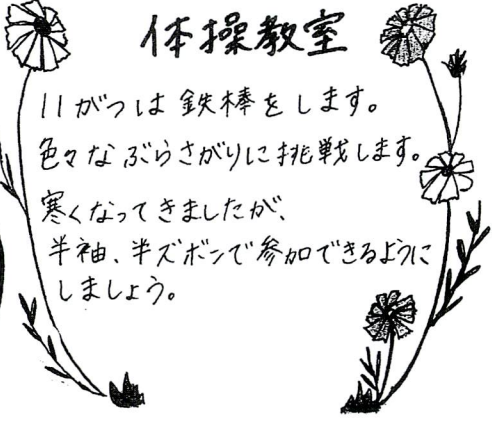 体操教室
11がつは鉄棒をします。
色々なぶらさがりに挑戦します。
寒くなってきましたが、
半袖、半ズボンで参加できるように
しましょう。